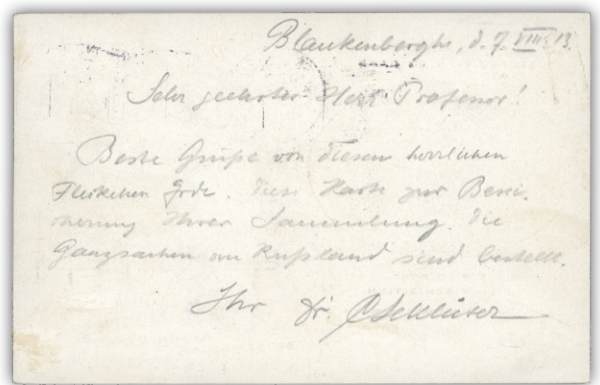 Blankenberghe, d. 7. VIII. 13.
Sehr geehrter Herr Professor!
Beste Grüße von diesem herrlichen
Fleckchen Erde. Diese Karte zur Berei-
cherung Ihrer Sammlung. Die
Ganzsachen von Rußland sind bestellt.
Ihr Dr.